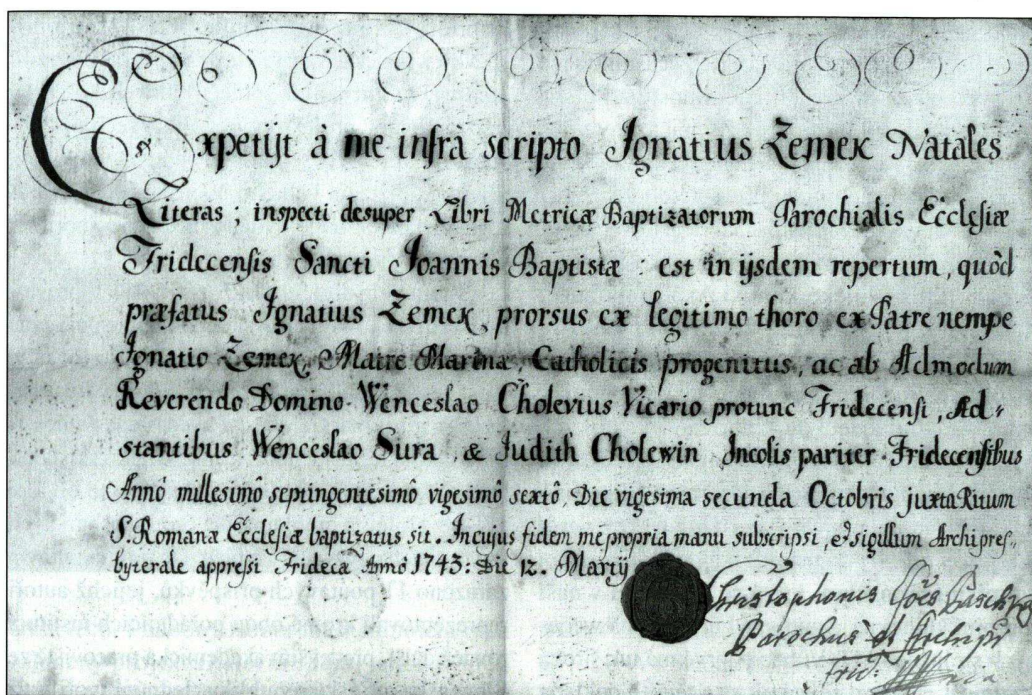 Expetijt à me infrà scripto Ignatius Zemek Natales
Literas ; inspecti desuper Libri Metricæ Baptizatorum Parochialis Ecclesiæ
Fridecensis Sancti Joannis Baptistæ : est in ijsdem repertum, quòd
præfatus Ignatius Zemek, prorsus ex legitimo thoro ex Patre nempe
Ignatio Zemek, Matre Marina, Catholicis progenitus, ac ab Admodum
Reverendo Domino Wenceslao Cholevius Vicario protunc Fridecensi, Ad-
stantibus Wenceslao Sura, & Judith Cholewin Incolis pariter Fridecensibus
Annô millesimô septingentesimô vigesimô sextô, Die vigesima secunda Octobris juxta Ritum
S. Romanæ Ecclesiæ baptizatus sit. In cujus fidem me propria manu subscripsi, & sigillum Archipres-
byterale appressi Fridecæ Annô 1743: Die 12. Martij
Christophorus
Parochus et Archipr
Frid.